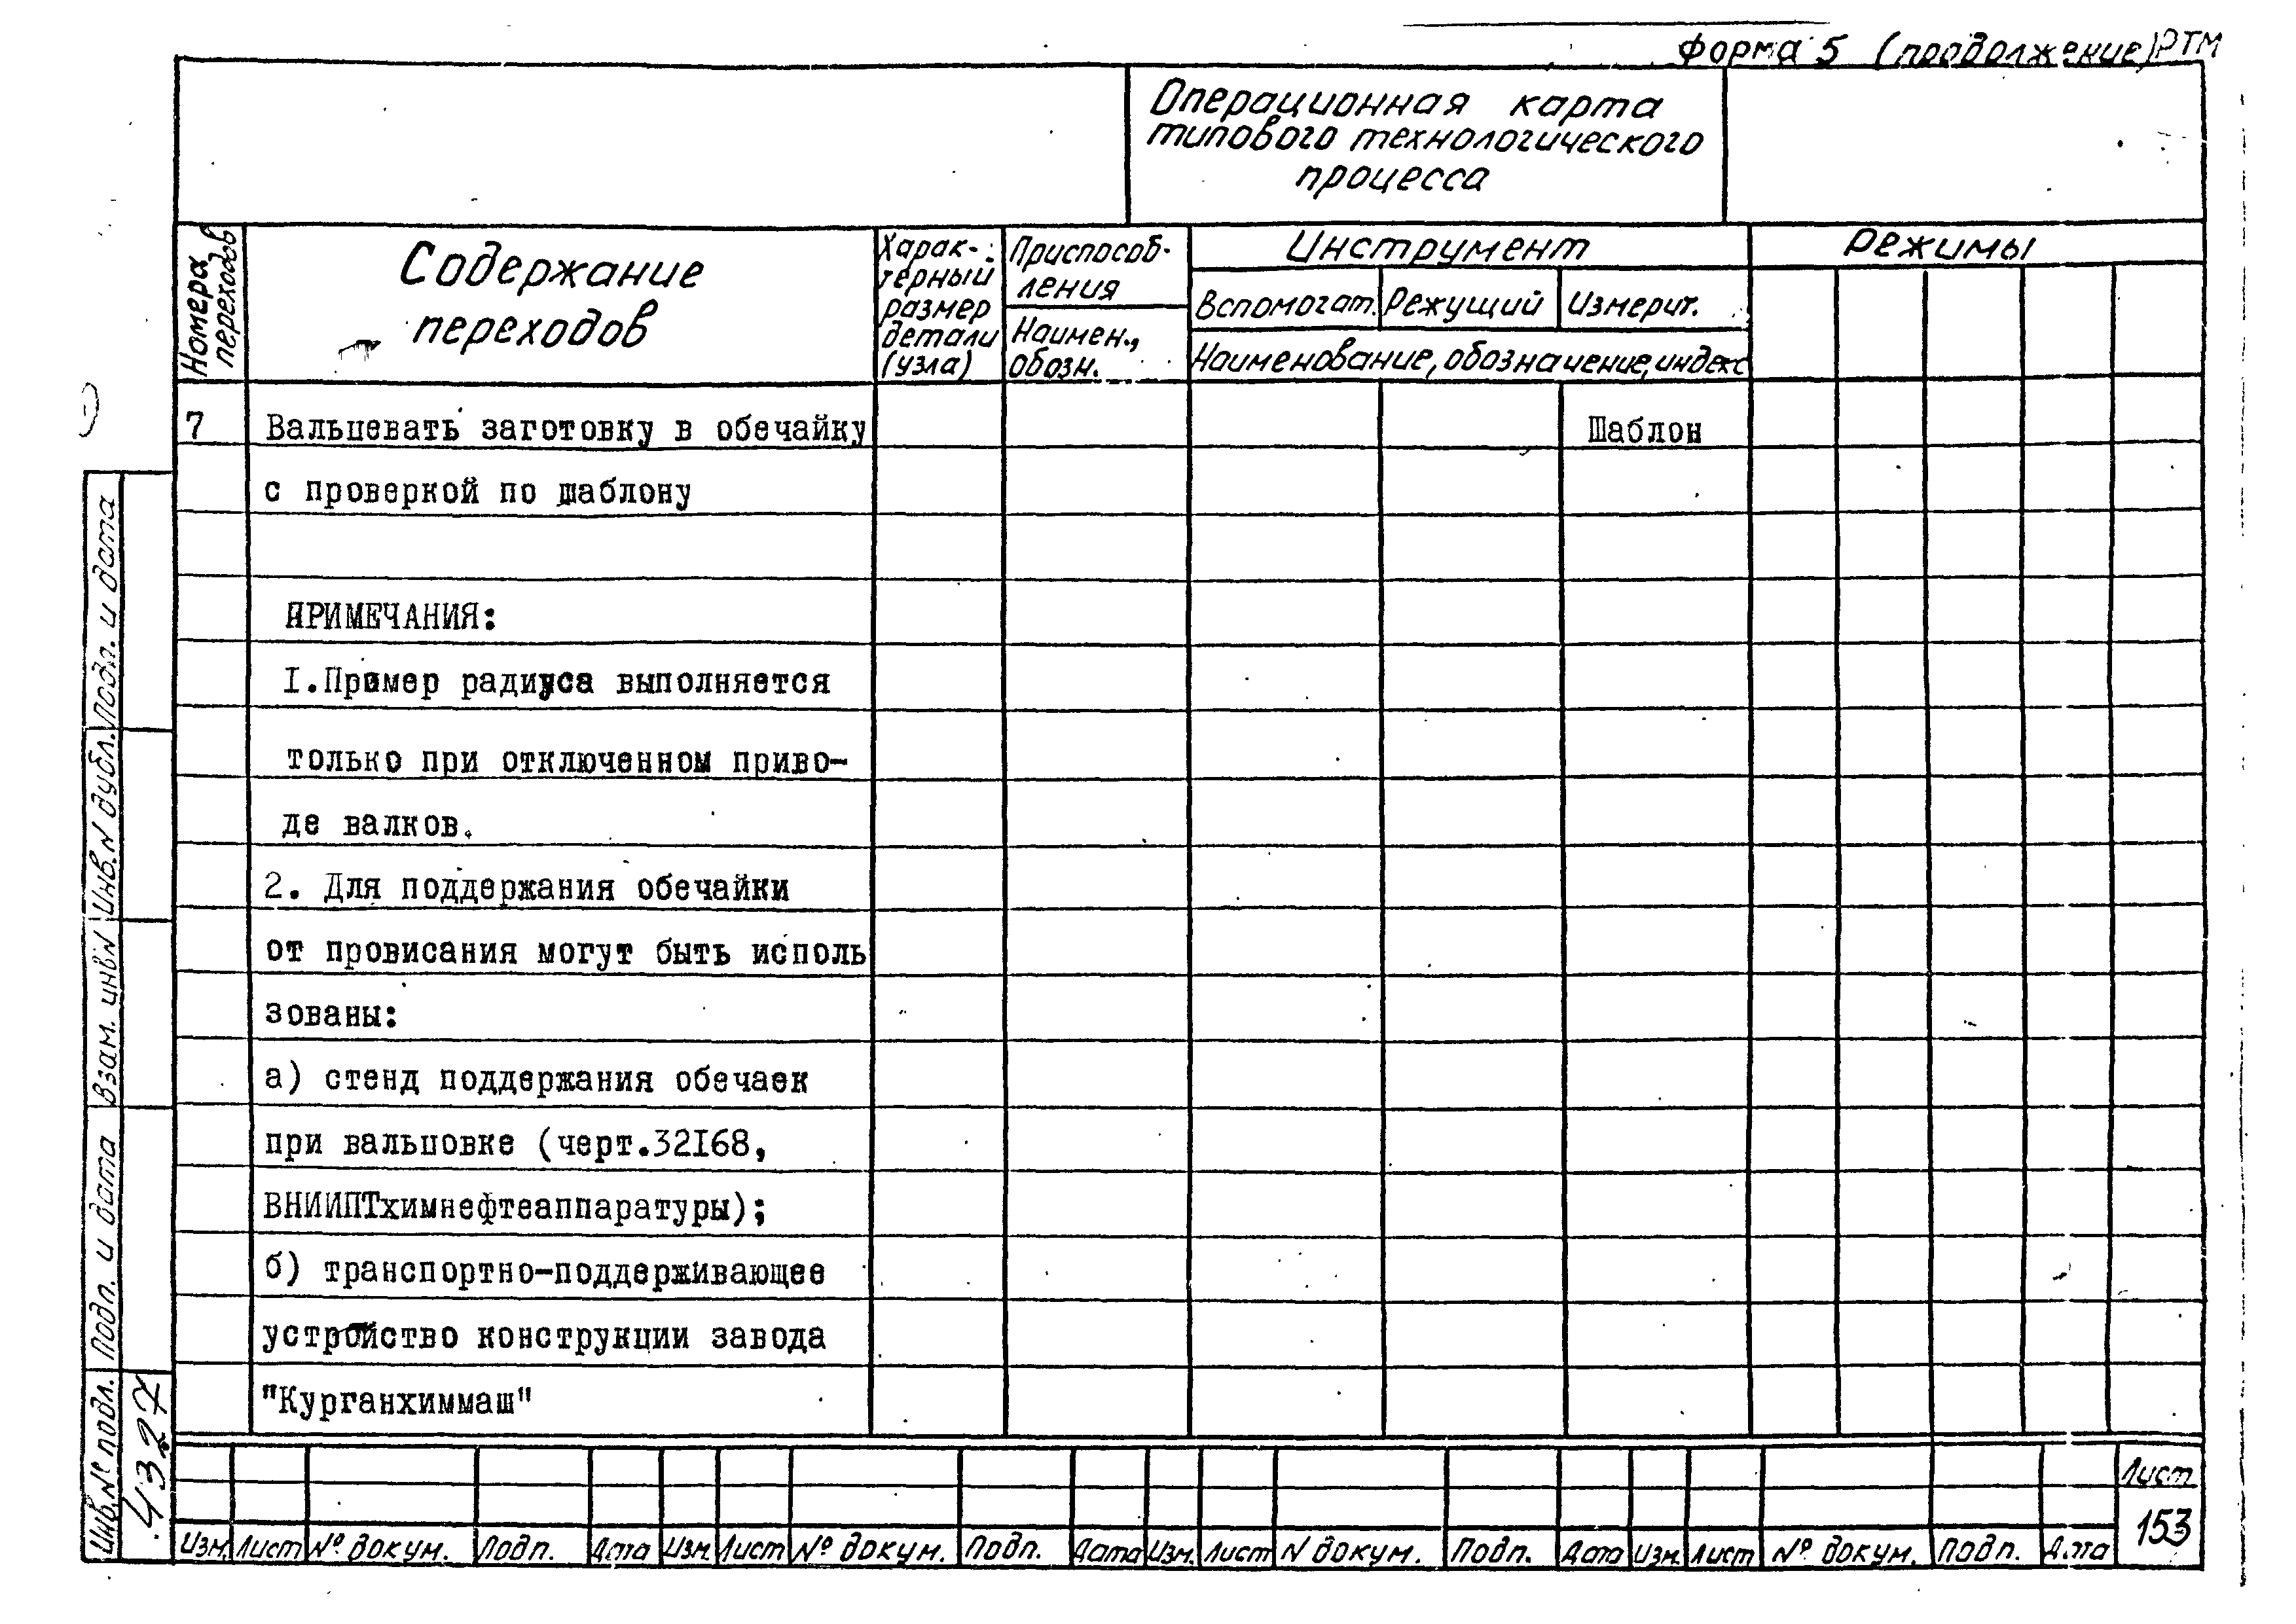 Форма 5 (продолжение) РТМ
Операционная карта
типового технологического
процесса
Номера
переходов
Содержание
переходов
Харак-
терный
размер
детали
(узла)
Приспособ-
ления
Наимен.,
обозн.
Инструмент
Вспомогат. Режущий Измерит.
Наименование, обозначение, индекс
Режимы
7 Вальцевать заготовку в обечайку Шаблон
с проверкой по шаблону
ПРИМЕЧАНИЯ:
1.Пример радиуса выполняется
только при отключенном приво-
де валков.
2. Для поддержания обечайки
от провисания могут быть исполь
зованы:
а) стенд поддержания обечаек
при вальцовке (черт.32168,
ВНИИПТхимнефтеаппаратуры);
б) транспортно-поддерживающее
устройство конструкции завода
"Курганхиммаш"
Подп. и дата
Инв.N дубл.
Взам. инв N
Подп. и дата
Инв.№ подл.
4327
Изм. Лист № докум. Подп. Дата Изм. Лист № докум. Подп. Дата Изм. Лист N докум. Подп. Дата Изм. Лист № докум. Подп. Дата
Лист
153